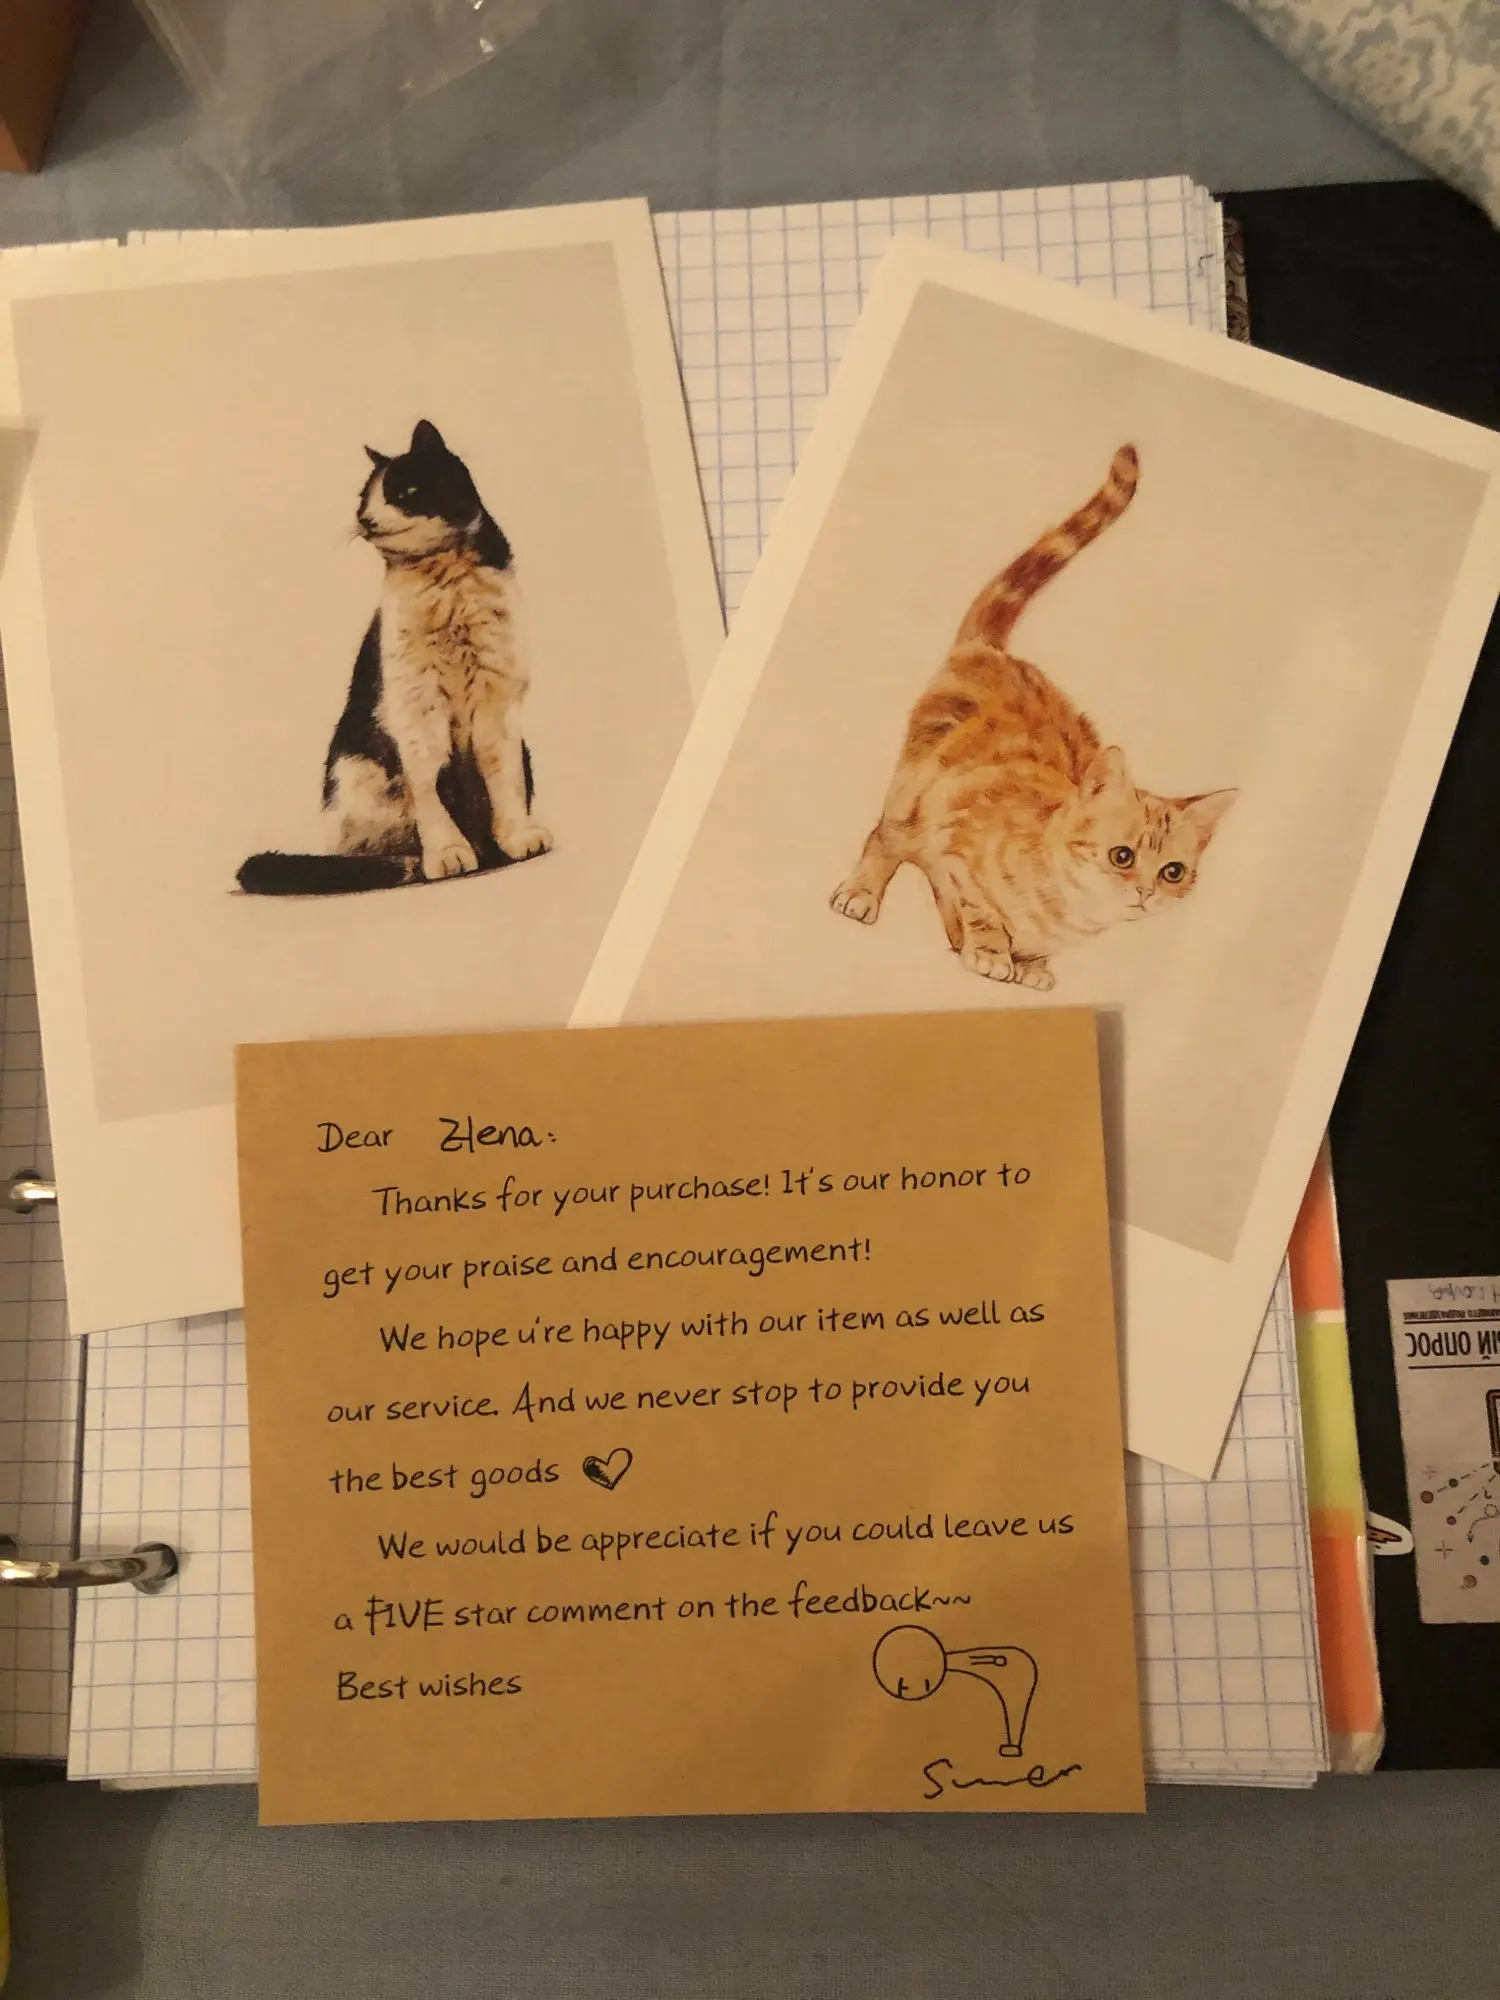 Dear Elena:
Thanks for your purchase! It's our honor to
get your praise and encouragement!
We hope u're happy with our item as well as
our service. And we never stop to provide you
the best goods
We would be appreciate if you could leave us
a FIVE star comment on the feedback~~
Best wishes
ЫЙ ОПРОС